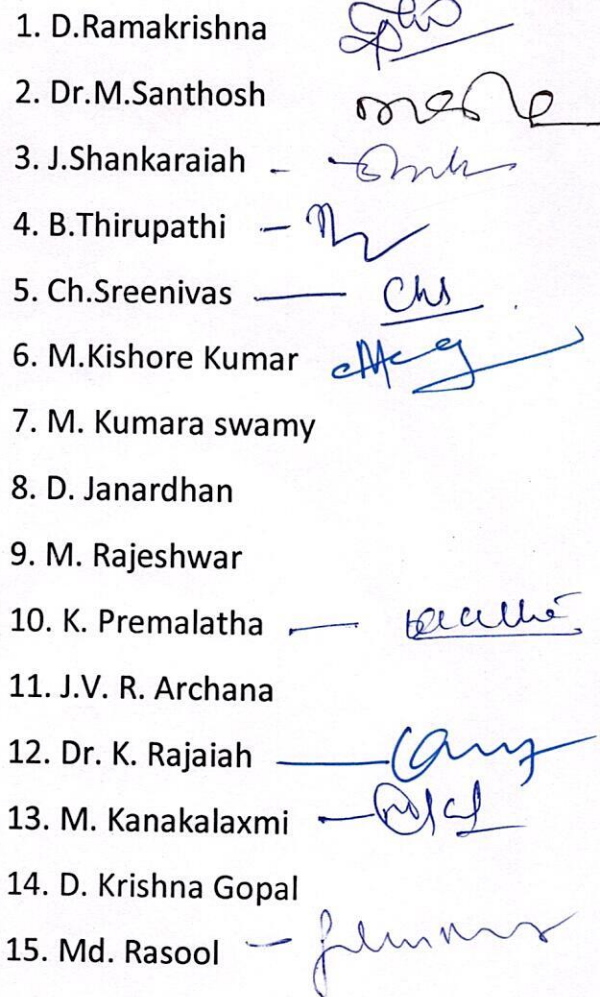 1. D.Ramakrishna
2. Dr.M.Santhosh
3. J.Shankaraiah -
4. B.Thirupathi -
5. Ch.Sreenivas - Chs
6. M.Kishore Kumar
7. M. Kumara swamy
8. D. Janardhan
9. M. Rajeshwar
10. K. Premalatha -
11. J.V. R. Archana
12. Dr. K. Rajaiah -
13. M. Kanakalaxmi -
14. D. Krishna Gopal
15. Md. Rasool -